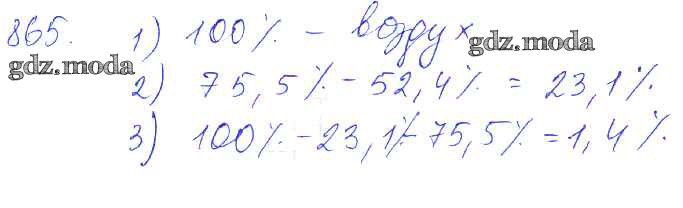 865. 1) 100% - воздух
gdz.moda
gdz.moda
2) 75,5% - 52,4% = 23,1%
3) 100% - 23,1% - 75,5% = 1,4%.